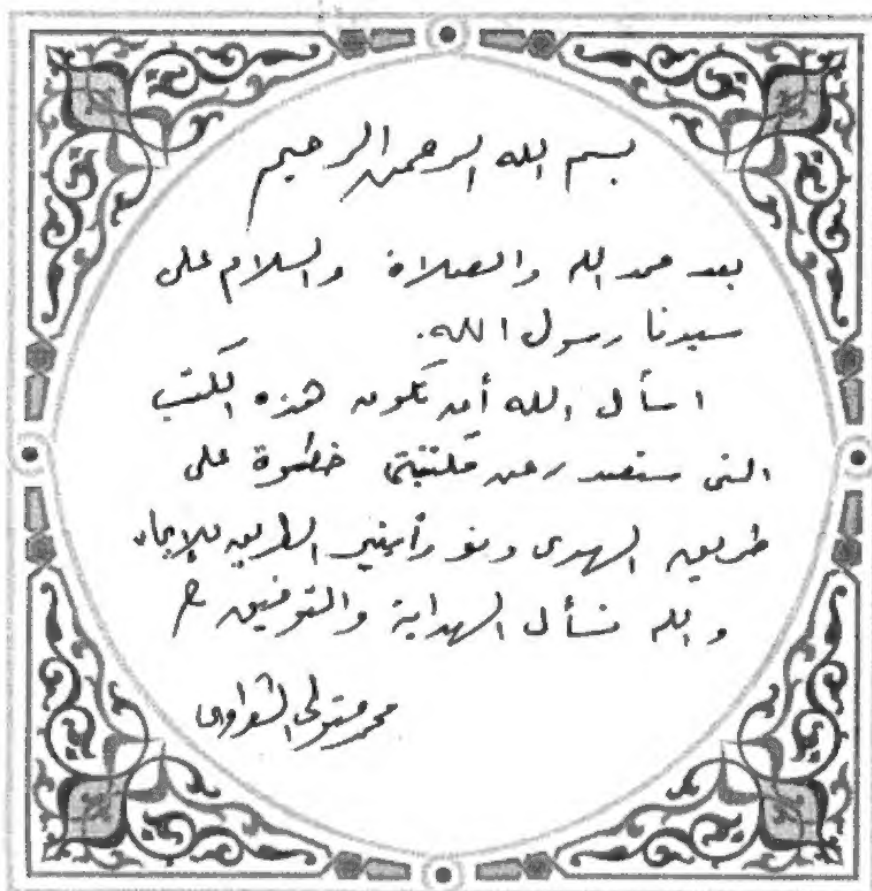 بسم الله الرحمن الرحيم
بعد حمد الله والصلاة والسلام على
سيدنا رسول الله.
اسأل الله أن تكون هذه الكتب
التى ستصدر عن مكتبتى خطوة على
طريق الهدى ونورًا ينير الطريق للإيمان
والله نسأل الهداية والتوفيق م
محمد متولى الشعراوى